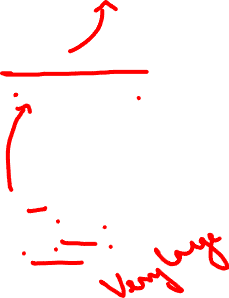 Very Large